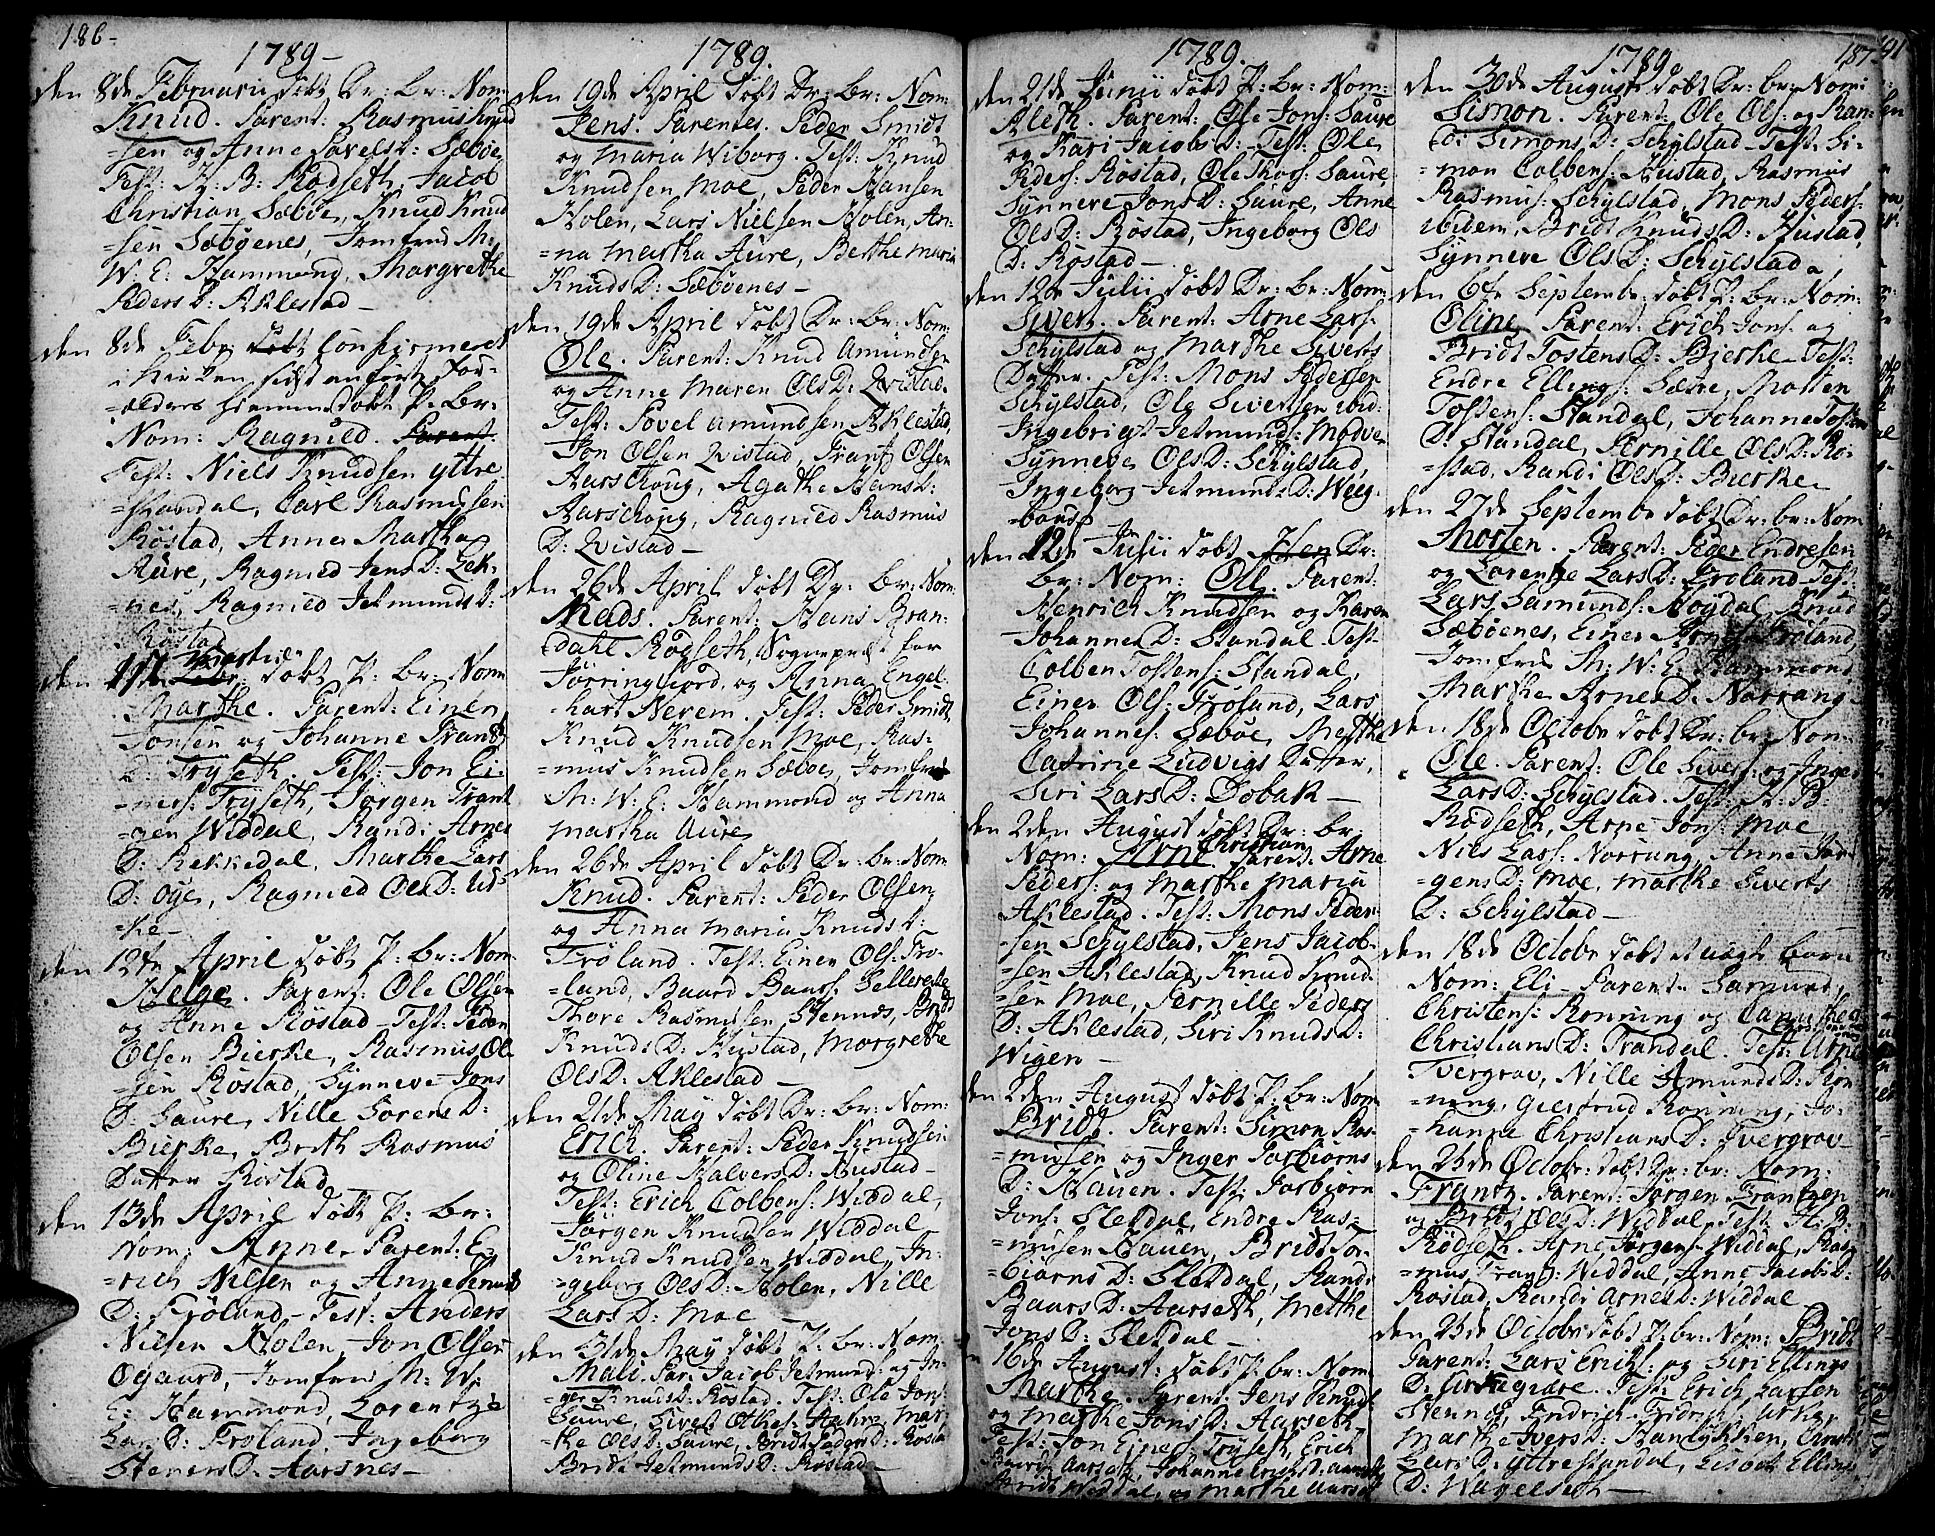 186-
1789-
den 8de Februarii döbt Dr: br: Nom:
Knud. Parent: Rasmus Knud
=sen og Anne Pavels D: Sæbøe
Test: H: B: Rödseth, Jacob
Christian Sæbøe, Knud Knud
=sen Sæbøenes, Jomfrue M:
W: E: Hammond, Margrethe
Peders D: Aklestad-
den 8de Febr döbt Confirmeret
i Kirken
=ældres hiemmedøbt P: br:
Nom: Ragnild. Parent.
Test: Niels Knudsen yttre
=standal, Carl Rasmussen
Röstad, Anne Martha
Aure, Ragnild Jens D: Lek-
=nes, Ragnild Jetmunds D:
Röstad
Martii
den döbt P: br: Nom
Marthe. Parent: Einer
Jonsen og Johanne Frants
D: Tryseth, Test: Jon Ei-
=ners: Tryseth, Jörgen Frant
=zen Widdal, Randi Arnes
D: Rekkedal, Marthe Lars
D: Øye, Ragnild Ols D: Urs-
=ke-
den 12te April döbt P: br: Nom
Helge. Parent: Ole Olsen
og Anne Röstad- Test: Peder
Olsen Bierke, Rasmus Ole
=sen Röstad, Synneve Jons
D: Saure, Nille Sörens D:
Bierke, Brith Rasmus
Datter Röstad
den 13de April döbt P: br:
Nom: Anne. Parent: E-
=rich Nilsen og Anne Knuds
D: Fröland- Test: Anders
Nilsen Holen, Jon Olsen
Øgaard, Jomfrue M: W:
E: Hammond, Lorentze
Lars D: Fröland, Ingeborg
Steners D: Aarsnes-
1789.
den 19de April döbt Dr: br: Nom:
Jens. Parentes. Peder Smidt
og Maria Wiborg. Test: Knud
Knudsen Moe, Peder Hansen
Holen, Lars Nielsen Holen, An-
=na Martha Aure, Berthe Maria
Knuds D: Sæbøenes-
den 19de April döbt Dr: br: Nom:
Ole. Parent: Knud Amundsen
og Anne Maren Ols D: Qvistad.
Test: Povel Amundsen Aklestad,
Jon Olsen Qvistad, Frants Olsen
Aarschoug, Agathe Hans D:
Aarschoug, Ragnild Rasmus
D: Qvistad-
den 26de April döbt Dr: br: Nom:
Mads. Parent: Hans Bran-
=dahl Rödseth, Sognepræst for
Jörringfiord, og Anna Engel-
=hart Nerem. Test: Peder Smidt,
Knud Knudsen Moe, Ras-
=mus Knudsen Sæbøe, Jomfrue
M: W: E: Hammond og Anna
Martha Aure
den 26de April döbt Dr: br: Nom
Knud. Parent: Peder Olsen
og Anna Maria Knuds D:
Fröland. Test: Einer Ols: Frö-
=land, Baard Baars: Sellereite
Thore Rasmussen Stennes, Bridt
Knuds D: Hustad, Morgrethe
Ols D: Aklestad-
den 21de May döbt Dr: br: Nom:
Erich. Parent: Peder Knudsen
og Oline Halvers D: Hustad-
Test: Erich Colbens: Widdal,
Jörgen Knudsen Widdal
Knud Knudsen Widdal, In-
=geborg Ols D: Holen, Nille
Lars D: Moe-
den 31de May döbt P: br: Nom:
Mali. Par: Jacob Jetmunds: og In-
=ger Knuds D: Röstad. Test: Ole Jons:
Saure, Sivert Mar-
=the Ols D: Saure, Bridt Peders D: Röstad
Bridt Jetmunds D: Röstad-
1789.
den 21de Junii döbt P: br: Nom:
Aleth. Parent: Ole Jons: Saure
og Kari Jacobs D: Test: Ole
Peders: Röstad, Ole Thors: Saure,
Synneve Jons D: Saure, Anne
Ols D: Röstad, Ingeborg Ols
D: Röstad-
den 12te Julii döbt Dr: br: Nom:
Sivert. Parent: Arne Lars:
Schylstad og Marthe Siverts
Datter. Test: Mons Pedersen
Schylstad, Ole Siversen ibid:
Ingebrigt Jetmunds: Modve
Synneve Ols D: Schylstad,
Ingeborg Jetmunds D: Weeg-
=bous
den 12te Julii döbt Dr:
br: Nom: Ole. Parent:
Henrich Knudsen og Karen
Johanne D: Standal. Test:
Colben Tostens: Standal,
Einer Ols: Fröland, Lars
Johannes: Sæbøe, Mette
Catrine Ludvigs Datter,
Siri Lars D: Dobak-
den 2den August döbt Dr: br:
Christian
Nom: Arne Parent: Arne
Peders: og Marthe Maria
Aklestad. Test: Mons Peder-
=sen Schylstad, Jens Jacob-
=sen Aklestad, Knud Knud-
=sen Moe, Pernille Peders
D: Aklestad, Siri Knuds D:
Wigen-
den 2den August döbt P: br: Nom
Bridt. Parent: Simon Ras-
=musen og Inger Torbiörns
D: Hauen. Test: Torbiörn
Jons: Sletdal, Endre Ras-
=musen Hauen, Bridt Tor-
=biörns D: Sletdal, Randi
Baars D: Aarseth, Methe
Jons D: Sletdal-
16de August: döbt P: br: Nom
Marthe. Parent: Jens Knuds:
og Marthe Jons D: Aarseth
Test: Jon Einers: Tryseth, Erich
Aarseth, Johanne Erichs D: Aarseth,
Bridt Widdal, og Marthe Aarseth
1789.
187
191
den 30de August döbt Dr: br: Nom:
Simon. Parent: Ole Ols: og Ran-
=di Simons D: Schylstad- Test: Si-
=mon Colbens: Hustad, Rasmus
Rasmus: Schylstad, Mons Peders:
ibidem, Bridt Knuds D: Hustad,
Synneve Ols D: Schylstad-
den 6te Septembr: döbt P: br: Nom:
Oline. Parent: Erich Jons: og
Bridt Tostens D: Bierke- Test:
Endre Ellings: Sætre, Morten
Tostens: Standal, Johanne Tosten
D: Standal, Pernille Ols D: Rö-
=stad, Randi Ols D: Bierke-
den 27de Septembr döbt Dr: br: Nom
Morten. Parent: Peder Endresen
og Lorentze Lars D: Fröland Test:
Lars Samunds: Nogdal, Knud
Sæbøenes, Einer Fröland,
Jomfrue M: W: E: Hammond
Marthe Arnes D: Norrang-
den 18de Octobr döbt Dr: br: Nom:
Ole. Parent: Ole Sivers: og Inger
Lars D: Schylstad. Test: H: B:
Rödseth, Arne Jons: Moe
Niels Lars: Norrang, Anne Jör-
=gens D: Moe, Marthe Siverts
D: Schylstad-
den 18de Octobr döbt et uægte barn
Nom: Eli- Parent: Samund
Christens: Rönning og
Christians D: Trandal. Test: Arne
Tvergrov, Nille Amunds D: Rön-
=ning, Giertrud Rönning, Jo-
=hanne Christians D: Tvergrov-
den 25de Octobr: döbt Dr: br: Nom:
Frantz. Parent: Jörgen Frantzen
og Bridt Ols D: Widdal. Test: H: B:
Rödseth. Arne Jörgens: Widdal, Ras-
=mus Frants: Widdal, Anne Jacobs D:
Röstad, Randi Arnes D: Widdal
den 25de Octobr döbt P: br: Nom: Bridt
Parent: Lars Erichs: og Siri Ellings
D: Test: Erich Larsen
Stennes, Fridrich Fridrichs:
Marthe Ivers D:
Lars D: Yttrestandal, Lisbet Ellings
D: Wagelseth-